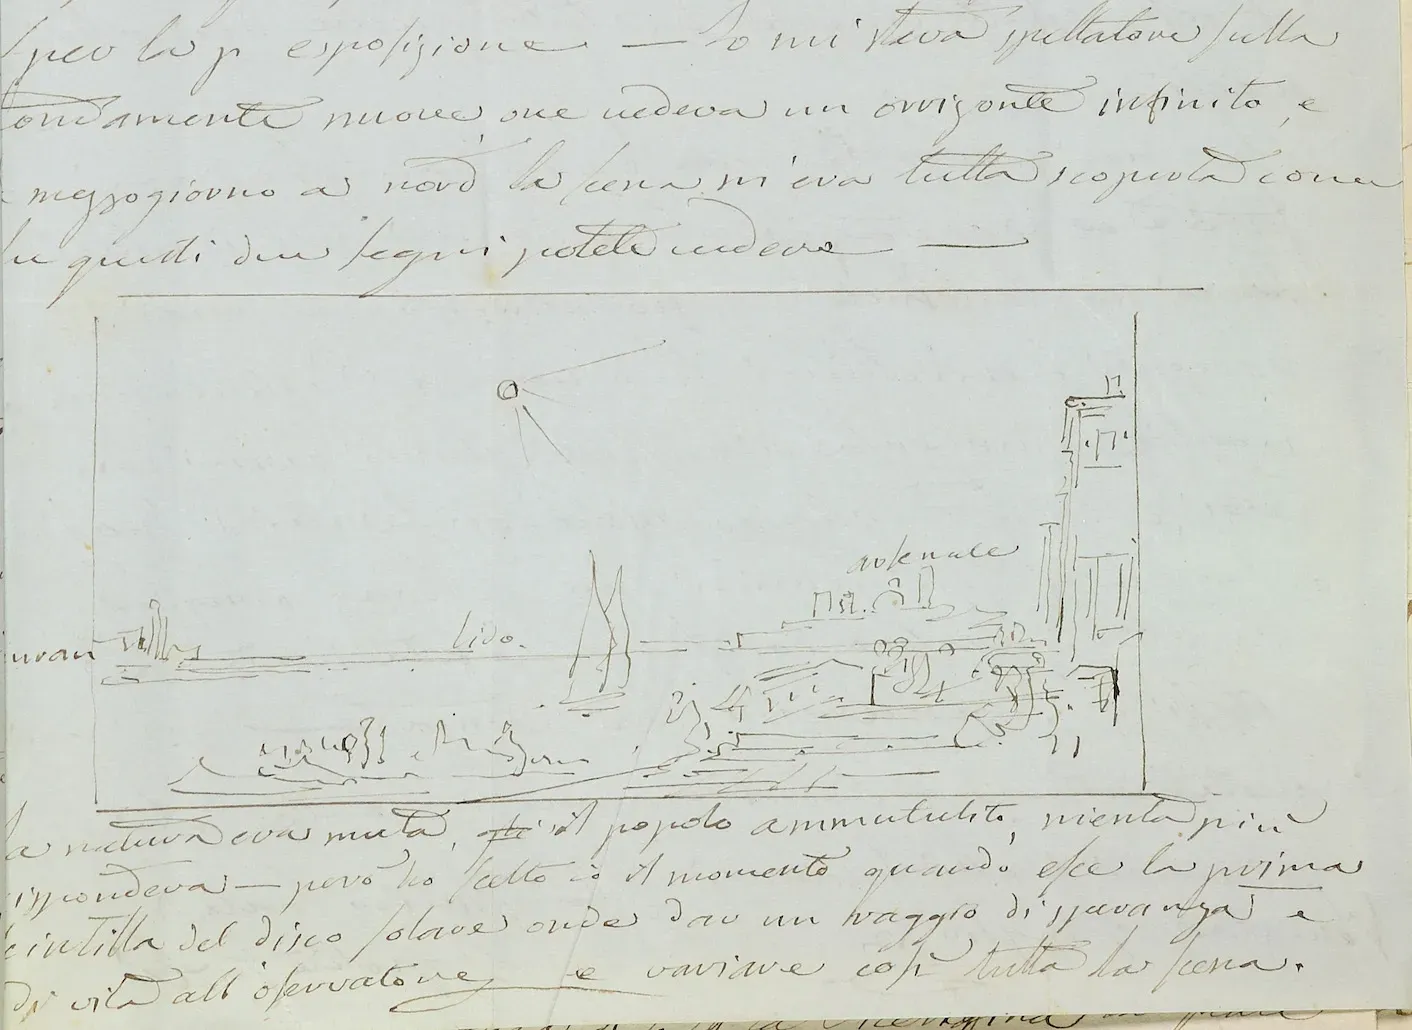 per la p esposizione — Io mi stava spettatore sulla
ondamente nuove ove vedeva un orrizonte infinito, e
mezzogiorno a nord la scena m'era tutta scoperta come
questi due segni potete vedere —
arsenale
lido.
muran
la natura era muta, il popolo ammutulito, nienta più
rispondeva — però ho scelto io il momento quando esce la prima
scintilla del disco solare onde dar un raggio di speranza e
di vita all'osservatore e variare così tutta la scena.